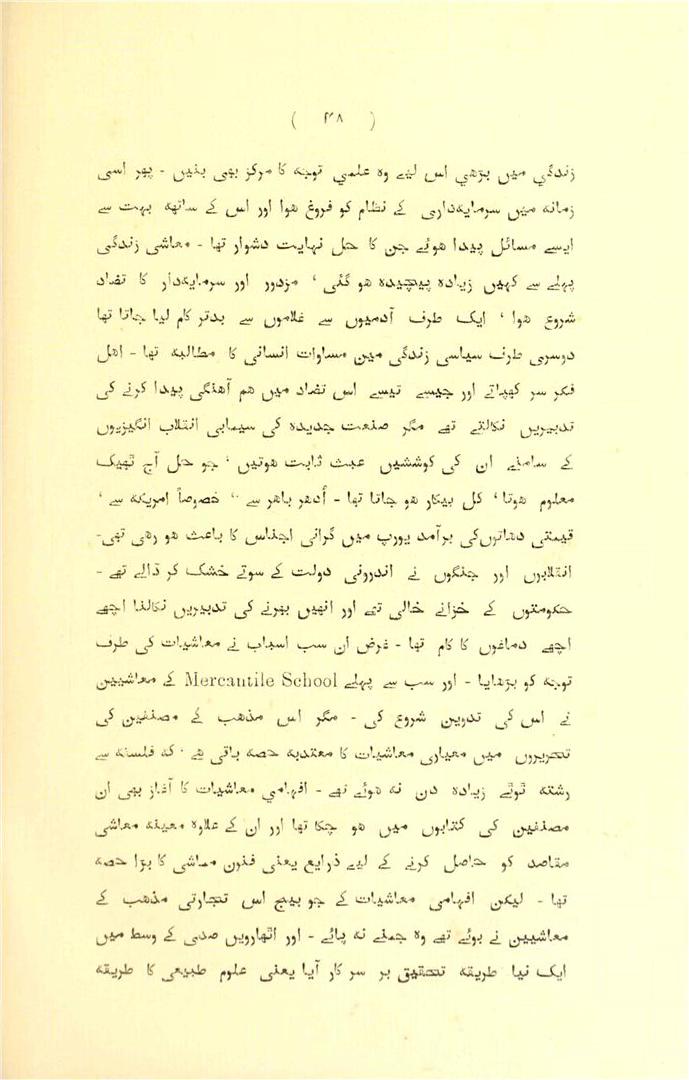 ( ۳۸ )
زندگي میں بڑھي اس لیے وہ علمي توجہ کا مرکز بھی بنیں - پھر اسی
زمانہ میں سرمایہ‌داری کے نظام کو فروغ ھوا اور اس کے ساتھہ بہت سے
ایسے مسائل پیدا ھوئے جن کا حل نہایت دشوار تھا - معاشی زندگی
پہلے سے کہیں زیادہ پیچیدہ ھو گئی ‘ مزدور اور سرمایہ‌دار کا تضاد
شروع ھوا ‘ ایک طرف آدمیوں سے غلاموں سے بدتر کام لیا جاتا تھا
دوسری طرف سیاسی زندگی مین مساوات انسانی کا مطالبہ تھا - اھل
فکر سر کھپاتے اور جیسے تیسے اس تضاد میں ھم آھنگی پیدا کرنے کی
تدبیریں نکالتے تھے مگر صنعت جدیدہ کی سیمابی انقلاب انگیزیوں
کے سامنے ان کی کوششیں عبث ثابت ھوتیں ‘ جو حل آج ٹھیک
معلوم ھوتا ‘ کل بیکار ھو جاتا تھا - اُدھر باھر سے ‘ خصوصاً امریکہ سے ‘
قیمتی دھاتوں‌کی برآمد یورپ میں گرانی اجناس کا باعث ھو رھی تھی-
انقلابوں اور جنگوں نے اندرونی دولت کے سوتے خشک کر ڈالے تھے -
حکومتوں کے خزانے خالی تھے اور انھیں بھرنے کی تدبیریں نکالنا اچھے
اچھے دماغوں کا کام تھا - غرض ان سب اسباب نے معاشیات کی طرف
توجہ کو بڑھایا - اور سب سے پہلے Mercantile School کے معاشیین
نے اس کی تدوین شروع کی - مگر اس مذھب کے مصنفین کی
تحریروں میں معیاری معاشیات کا معتدبہ حصہ باقی ھے ‘ کہ فلسفہ سے
رشتہ ٹوٹے زیادہ دن نہ ھوئے تھے - افہامي معاشیات کا آغاز بھی ان
مصنفین کی کتابوں میں ھو چکا تھا اور ان کے علاوہ معینہ معاشی
مقاصد کو حاصل کرنے کے لیے ذرایع یعنی فنون معاشی کا بڑا حصہ
تھا - لیکن افہامی معاشیات کے جو بیج اس تجارتی مذھب کے
معاشیین نے بوئے تھے وہ جمنے نہ پائے - اور اٹھارویں صدی کے وسط میں
ایک نیا طریقہ تحقیق بر سر کار آیا یعنی علوم طبیعی کا طریقہ